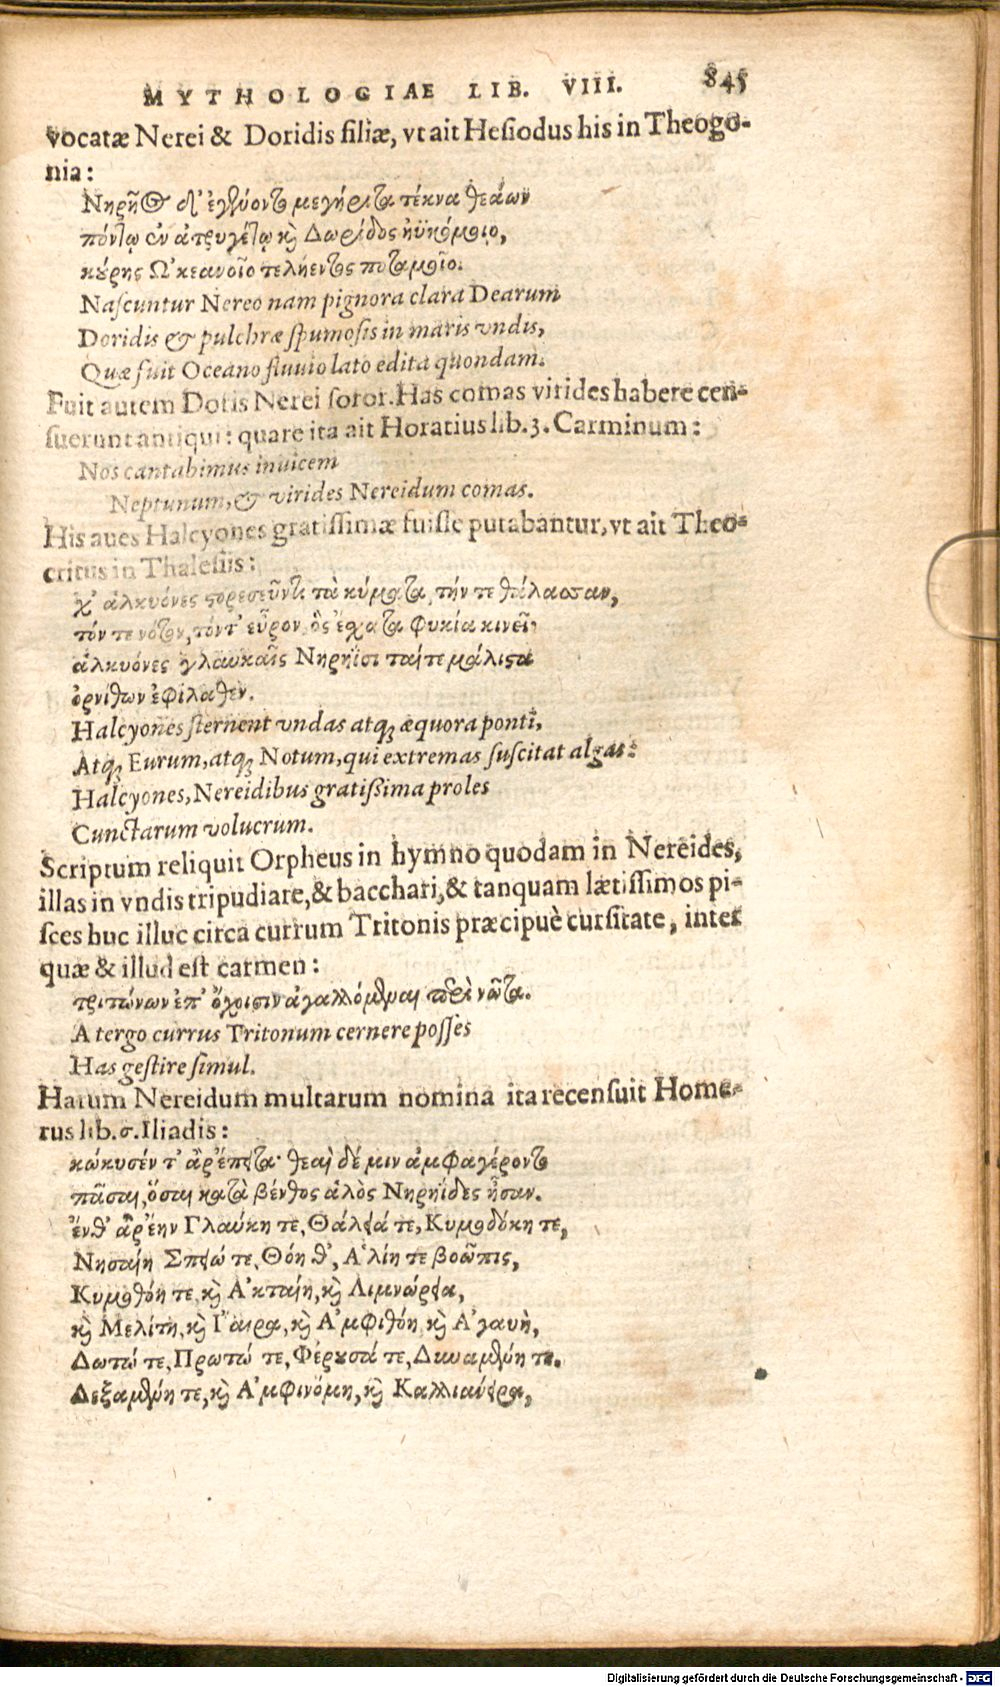 MYTHOLOGIAE LIB. VIII. 845
vocatæ Nerei & Doridis filiæ, vt ait Hesiodus his in Theogo-
nia:
Νηρῆος δ' ἐγένοντο μεγήριτα τέκνα θεάων
πόντῳ ἐν ἀτρυγέτῳ καὶ Δωρίδος ἠϋκόμοιο,
κούρης Ὠκεανοῖο τελήεντος ποταμοῖο.
Nascuntur Nereo nam pignora clara Dearum
Doridis & pulchræ spumosis in maris vndis,
Quæ fuit Oceano fluuio lato edita quondam.
Fuit autem Doris Nerei soror. Has comas virides habere cen-
suerunt antiqui: quare ita ait Horatius lib. 3. Carminum:
Nos cantabimus inuicem
Neptunum, & virides Nereidum comas.
His aues Halcyones gratissimæ fuisse putabantur, vt ait Theo-
critus in Thalesiis:
χ' ἀλκυόνες στορεσεῦντι τὰ κύματα, τήν τε θάλασσαν,
τόν τε νότον, τόν τ' εὖρον, ὃς ἔσχατα φυκία κινεῖ,
ἀλκυόνες γλαυκαῖς Νηρηΐσι ταί τε μάλιστα
ὀρνίθων ἐφίλαθεν.
Halcyones sternent vndas atq; æquora ponti,
Atq; Eurum, atq; Notum, qui extremas suscitat algas:
Halcyones, Nereidibus gratissima proles
Cunctarum volucrum.
Scriptum reliquit Orpheus in hymno quodam in Nereides,
illas in vndis tripudiare, & bacchari, & tanquam lætissimos pi-
sces huc illuc circa currum Tritonis præcipuè cursitare, inter
quæ & illud est carmen:
τριτώνων ἐπ' ὄχοισιν ἀγαλλόμεναι περὶ νῶτα.
A tergo currus Tritonum cernere posses
Has gestire simul.
Harum Nereidum multarum nomina ita recensuit Home-
rus lib. σ. Iliadis:
κώκυσέν τ' ἂρ ἔπειτα· θεαὶ δέ μιν ἀμφαγέροντο
πᾶσαι, ὅσαι κατὰ βένθος ἁλὸς Νηρηΐδες ἦσαν.
ἔνθ' ἂρ ἔην Γλαύκη τε, Θάλειά τε, Κυμοδόκη τε,
Νησαίη Σπειώ τε, Θόη θ', Ἁλίη τε βοῶπις,
Κυμοθόη τε, καὶ Ἀκταίη, καὶ Λιμνώρεια,
καὶ Μελίτη, καὶ Ἴαιρα, καὶ Ἀμφιθόη, καὶ Ἀγαυὴ,
Δωτώ τε, Πρωτώ τε, Φέρουσά τε, Δυναμένη τε.
Δεξαμένη τε, καὶ Ἀμφινόμη, καὶ Καλλιάνειρα,
Digitalisierung gefördert durch die Deutsche Forschungsgemeinschaft - DFG